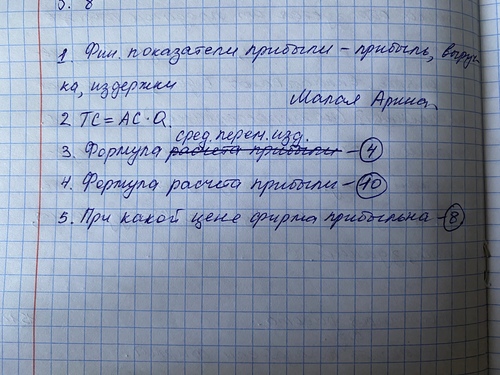 5. 8
1. Фин. показатели прибыли – прибыль, выруч
ка, издержки
Малая Арина
2. TC = AC · Q.
сред. перем. изд.
3. Формула расчета прибыли – 4
4. Формула расчета прибыли – 10
5. При какой цене фирма прибыльна – 8